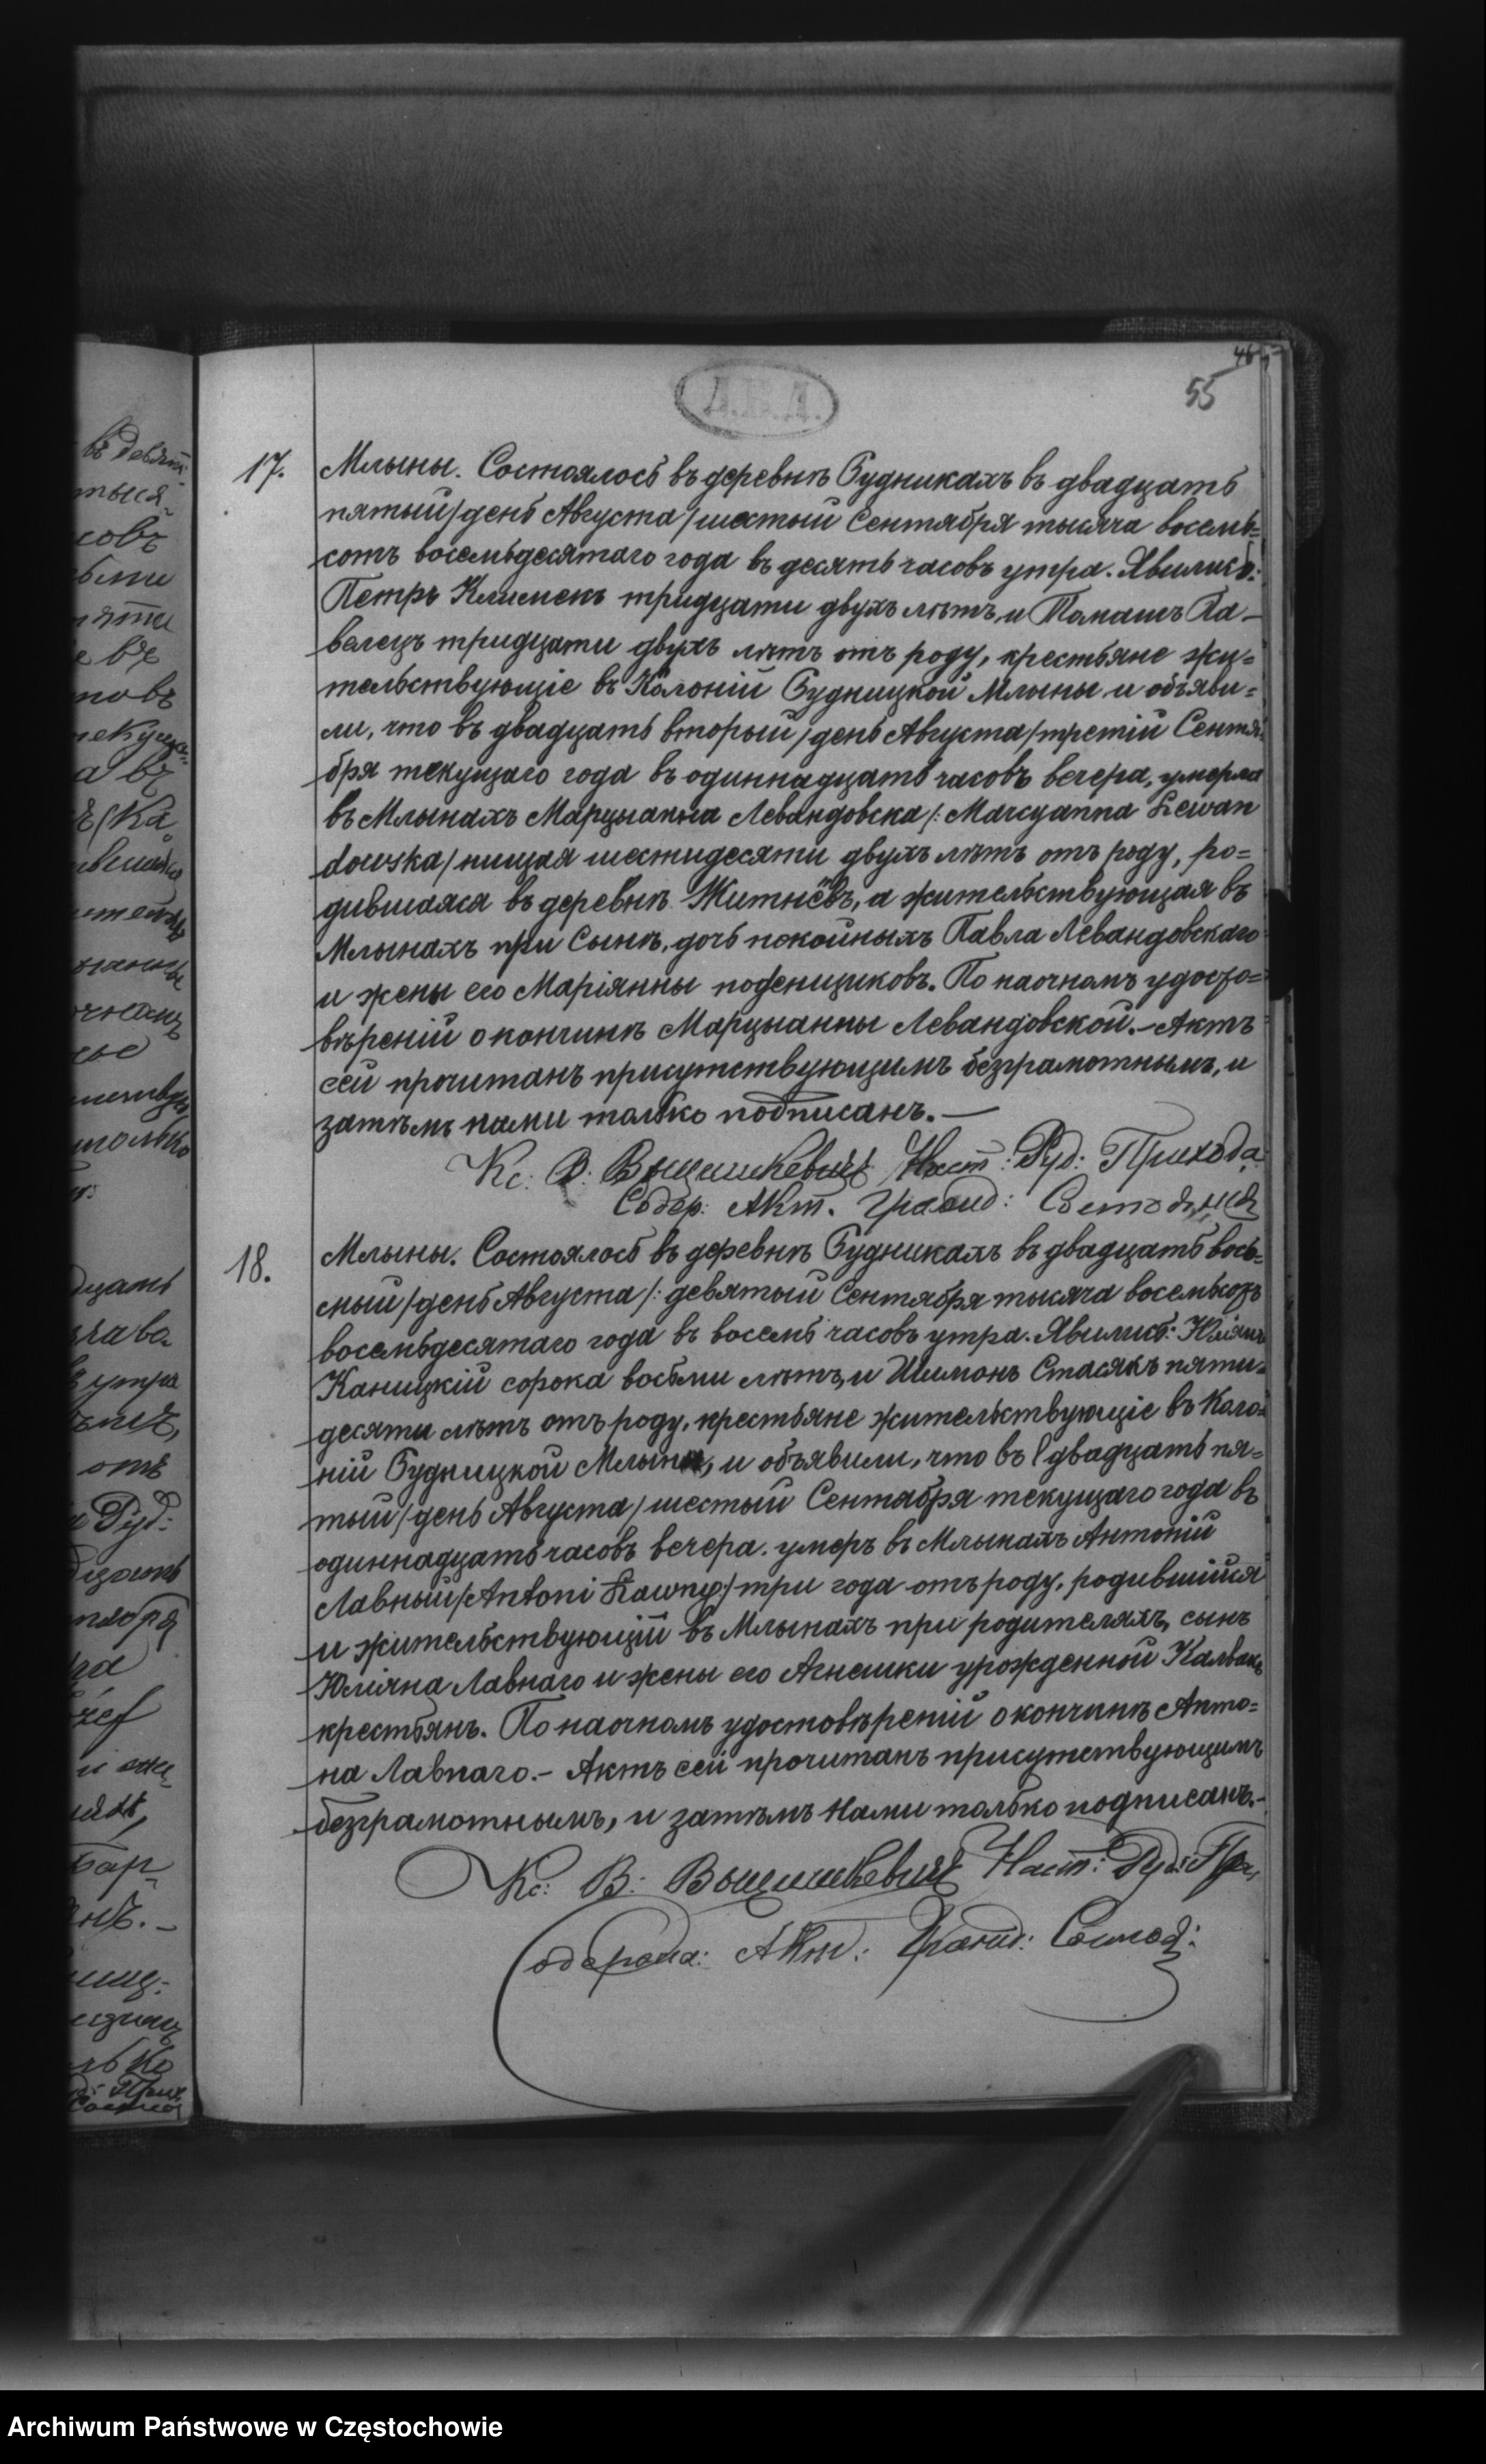 46
55
17. Млыны. Состоялось въ деревнѣ Рудникахъ въ двадцать
пятый/день Августа/шестый Сентября тысяча восемь=
сотъ восемьдесятаго года въ десять часовъ утра. Явились:
Петръ Климекъ тридцати двухъ лѣтъ, и Томашъ Ка-
валецъ тридцати двухъ лѣтъ отъ роду, крестьяне жи=
тельствующіе въ Колоніи Рудницкой Млыны и объяви=
ли, что въ двадцать вторый/день Августа/третій Сентя=
бря текущаго года въ одиннадцать часовъ вечера, умерла
въ Млынахъ Марцыанна Левандовска/: Marcyanna Lewan
dowska/нищая шестидесяти двухъ лѣтъ отъ роду, ро=
дившаяся въ деревнѣ Житнёвъ, а жительствующая въ
Млынахъ при Сынѣ, дочь покойныхъ Павла Левандовскаго
и жены его Маріянны поденщиковъ. По наочномъ удосто=
вѣреній о кончинѣ Марцыанны Левандовской.- Актъ
сей прочитанъ присутствующимъ безграмотнымъ, и
затѣмъ нами только подписанъ.-
Кс: В: Наст: Руд: Прихода
Содер: Акт. Гражд: Состоянія
18. Млыны. Состоялось въ деревнѣ Рудникахъ въ двадцать вось=
мый/день Августа/: девятый Сентября тысяча восемьсотъ
восемьдесятаго года въ восемь часовъ утра. Явились: Юліянъ
Каницкій сорока восьми лѣтъ, и Шимонъ Стасякъ пяти=
десяти лѣтъ отъ роду, крестьяне жительствующіе въ Коло=
ніи Рудницкой Млыны, и объявили, что въ двадцать пя=
тый/день Августа/шестый Сентября текущаго года въ
одиннадцать часовъ вечера. умеръ въ Млынахъ Антоній
Лавный/Antoni Ławny:/три года отъ роду, родившійся
и жительствующій въ Млынахъ при родителяхъ, сынъ
Юліяна Лавнаго и жены его Агнешки урожденной Калвакъ
крестьянъ. По наочномъ удостовѣреніи о кончинѣ Анто=
на Лавнаго.- Актъ сей прочитанъ присутствующимъ
безграмотнымъ, и затѣмъ Нами только подписанъ.-
Кс: В: Наст: Руд: При,
Содержа: Акт: Гражд: Состоя:
Archiwum Państwowe w Częstochowie